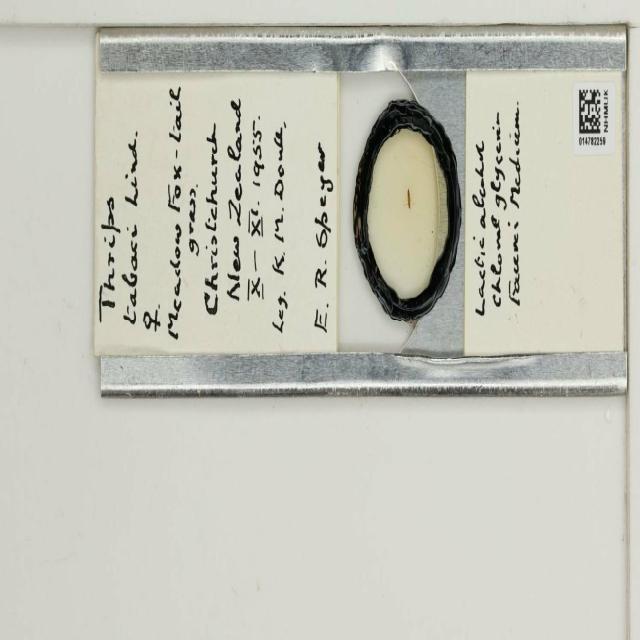 Thrips
tabaci Lind.
♀
Meadow Fox-tail
grass
Christchurch
New Zealand
X-XI. 1955.
Leg. K. M. Doull,
E. R. Speyer
Lactic alcohol
chloral glycerin
Faure's Medium.
NHMUK
014782256